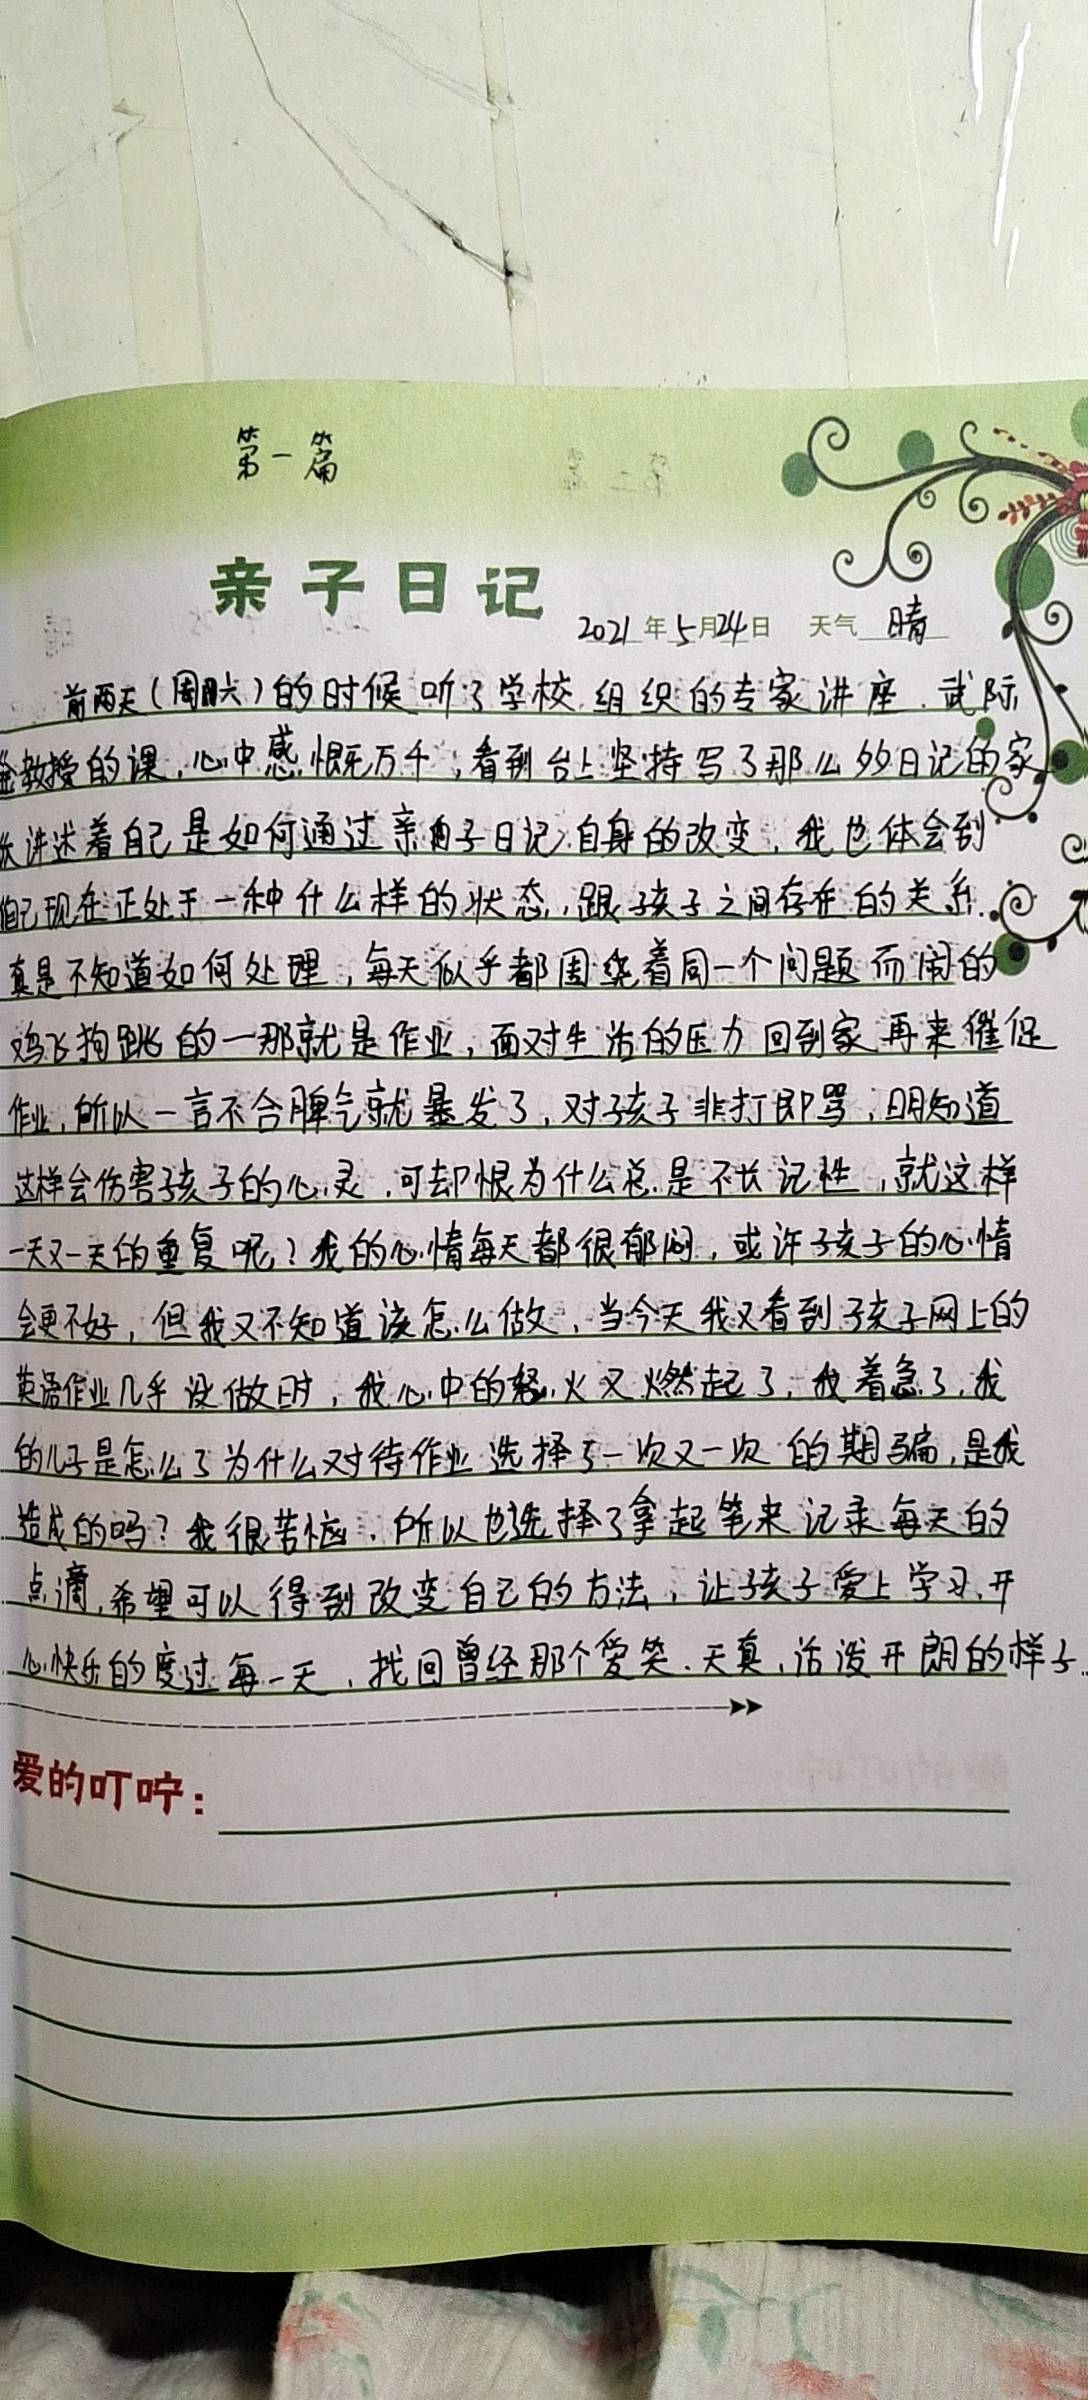 第一篇
亲子日记
2021年5月24日 天气 晴
前两天(周六)的时候听了学校组织的专家讲座.武际
金教授的课,心中感慨万千,看到台上坚持写了那么多日记的家
长讲述着自己是如何通过亲子日记自身的改变,我也体会到
自己现在正处于一种什么样的状态,跟孩子之间存在的关系.
真是不知道如何处理,每天似乎都围绕着同一个问题而闹的
鸡飞狗跳的一那就是作业,面对生活的压力回到家再来催促
作业,所以一言不合脾气就暴发了,对孩子非打即骂,明知道
这样会伤害孩子的心灵,可却恨为什么总是不长记性,就这样
一天又一天的重复呢?我的心情每天都很郁闷,或许孩子的心情
会更不好,但我又不知道该怎么做,当今天我又看到孩子网上的
英语作业几乎没做时,我心中的怒火又燃起了,我着急了,我
的儿子是怎么了为什么对待作业选择了一次又一次的期骗,是我
造成的吗?我很苦恼,所以也选择了拿起笔来记录每天的
点滴,希望可以得到改变自己的方法,让孩子爱上学习,开
心快乐的度过每一天,找回曾经那个爱笑.天真,活泼开朗的样子.
爱的叮咛: